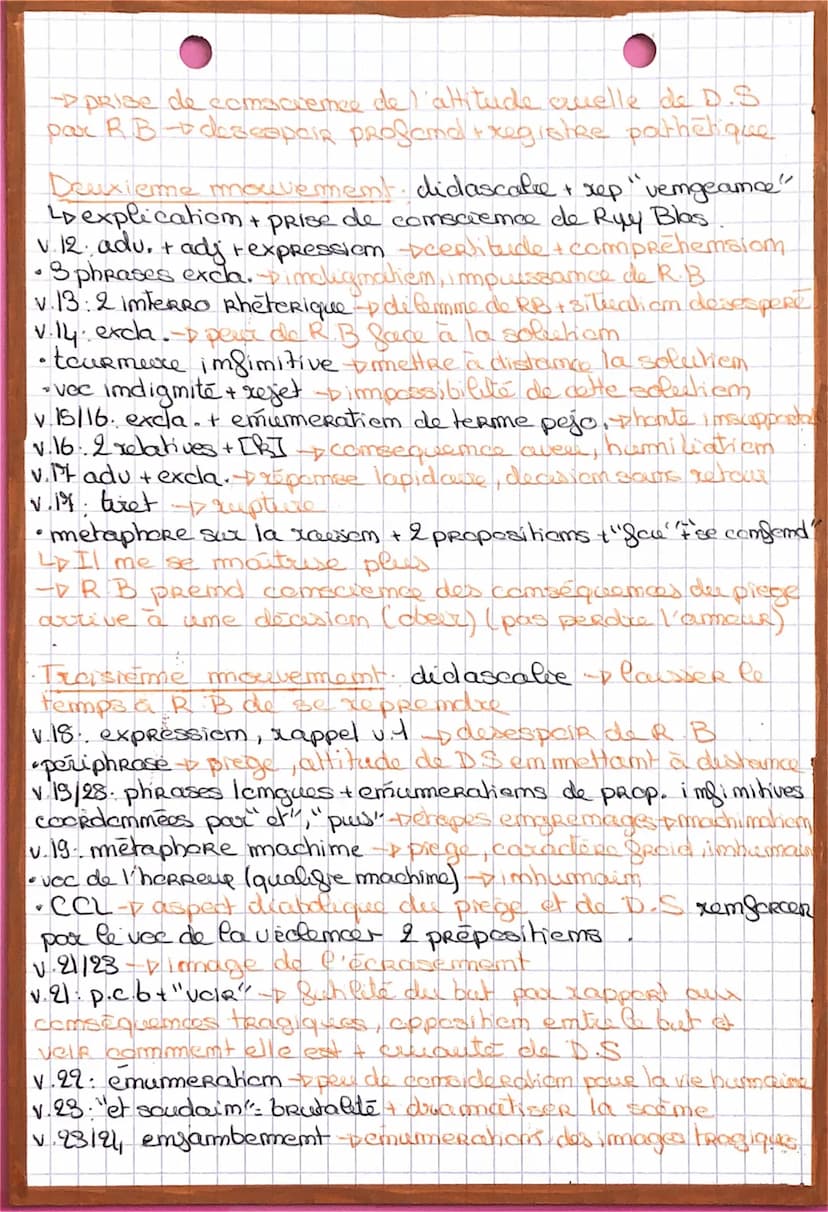 → prise de conscience de l'attitude cruelle de D.S
par R B → desespoir profond + registre pathétique
Deuxieme mouvement : didascalie + rep "vengeance"
↳ explication + prise de conscience de Ryy Blas.
v.12 : adv. + adj + expression → certitude + comprehension
• 3 phrases excla. → indignation, impuissance de R.B
v.13 : 2 interro Rhétorique → dilemme de RB + situation desesperé
v.14 : excla. → peur de R.B face à la solution
• tournure infinitive → mettre à distance la solution
• voc indignité + rejet → impossibilité de cette solution
v.15/16 : excla. + énumeration de terme pejo. → honte insupportable
v.16 : 2 relatives + [R] → consequence aveu, humiliation
v.17 adv + excla. → réponse lapidaire, decision sans retour
v.17 : tiret → rupture
• métaphore sur la raison + 2 propositions + "fou" + "se confond"
↳ Il ne se maîtrise plus
→ R B prend conscience des conséquences du piege
arrive à une décision (obeir) (pas perdre l'amour)
Troisième mouvement : didascalie → laisser le
temps à R B de se reprendre
v.18 : expression, rappel v.1 → desespoir de R.B
• périphrase → piege, attitude de D S en mettant à distance
v.19/28 : phrases longues + enumerations de prop. infinitives
coordonnées par "et", "puis" → étapes engrenages → machination
v.19 : métaphore machine → piege, caractère froid, inhumain
• voc de l'horreur (qualifie machine) → inhumain
• CCL → aspect diabolique du piege et de D.S renforcer
par le voc de la violence + 2 prépositions.
v.21/23 → image de l'écrasement
v.21 : p.c.b + "voir" → futilité du but par rapport aux
conséquences tragiques, opposition entre le but et
voir comment elle est + cruauté de D.S
v.22 : énumeration → peu de consideration pour la vie humaine
v.23 : "et soudain" = brutalité + dramatiser la scène
v.23/24 enjambement → enumerations des images tragiques